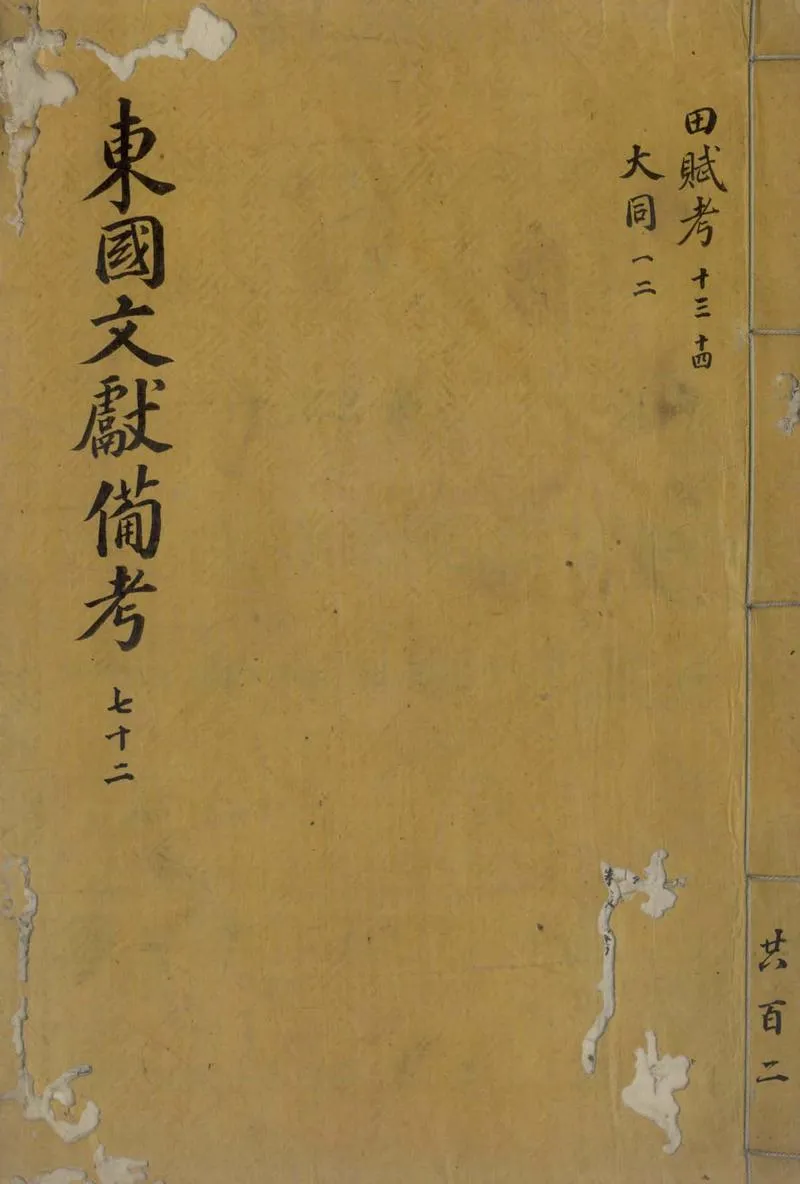 共百二
田賦考 十三 十四
大同 一二
東國文獻備考 七十二